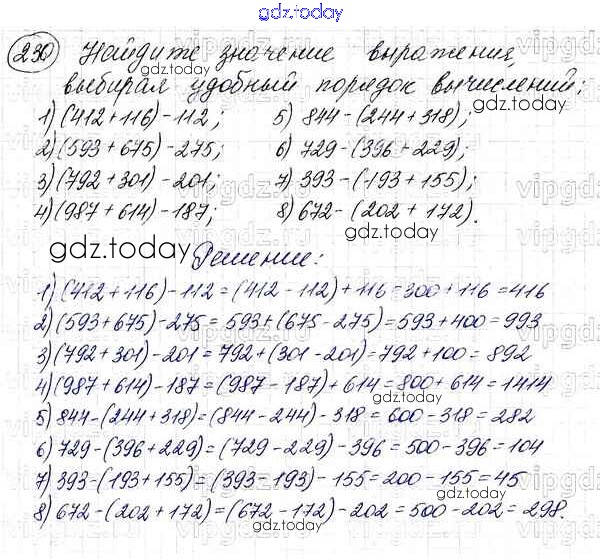 gdz.today
230 Найдите значение выражения,
выбирая удобный порядок вычислений;
gdz.today
gdz.today
1) (412+116)-112; 5) 844-(244+318);
2) (593+675)-275; 6) 729-(396+229);
3) (792+301)-201; 7) 393-(193+155);
4) (987+614)-187; 8) 672-(202+172).
gdz.today
gdz.today
Решение:
1) (412+116)-112=(412-112)+116=300+116=416
2) (593+675)-275=593+(675-275)=593+400=993
3) (792+301)-201=792+(301-201)=792+100=892
4) (987+614)-187=(987-187)+614=800+614=1414
5) 844-(244+318)=(844-244)-318=600-318=282
6) 729-(396+229)=(729-229)-396=500-396=104
7) 393-(193+155)=(393-193)-155=200-155=45
8) 672-(202+172)=(672-172)-202=500-202=298.
gdz.today
gdz.today
gdz.today
gdz.today